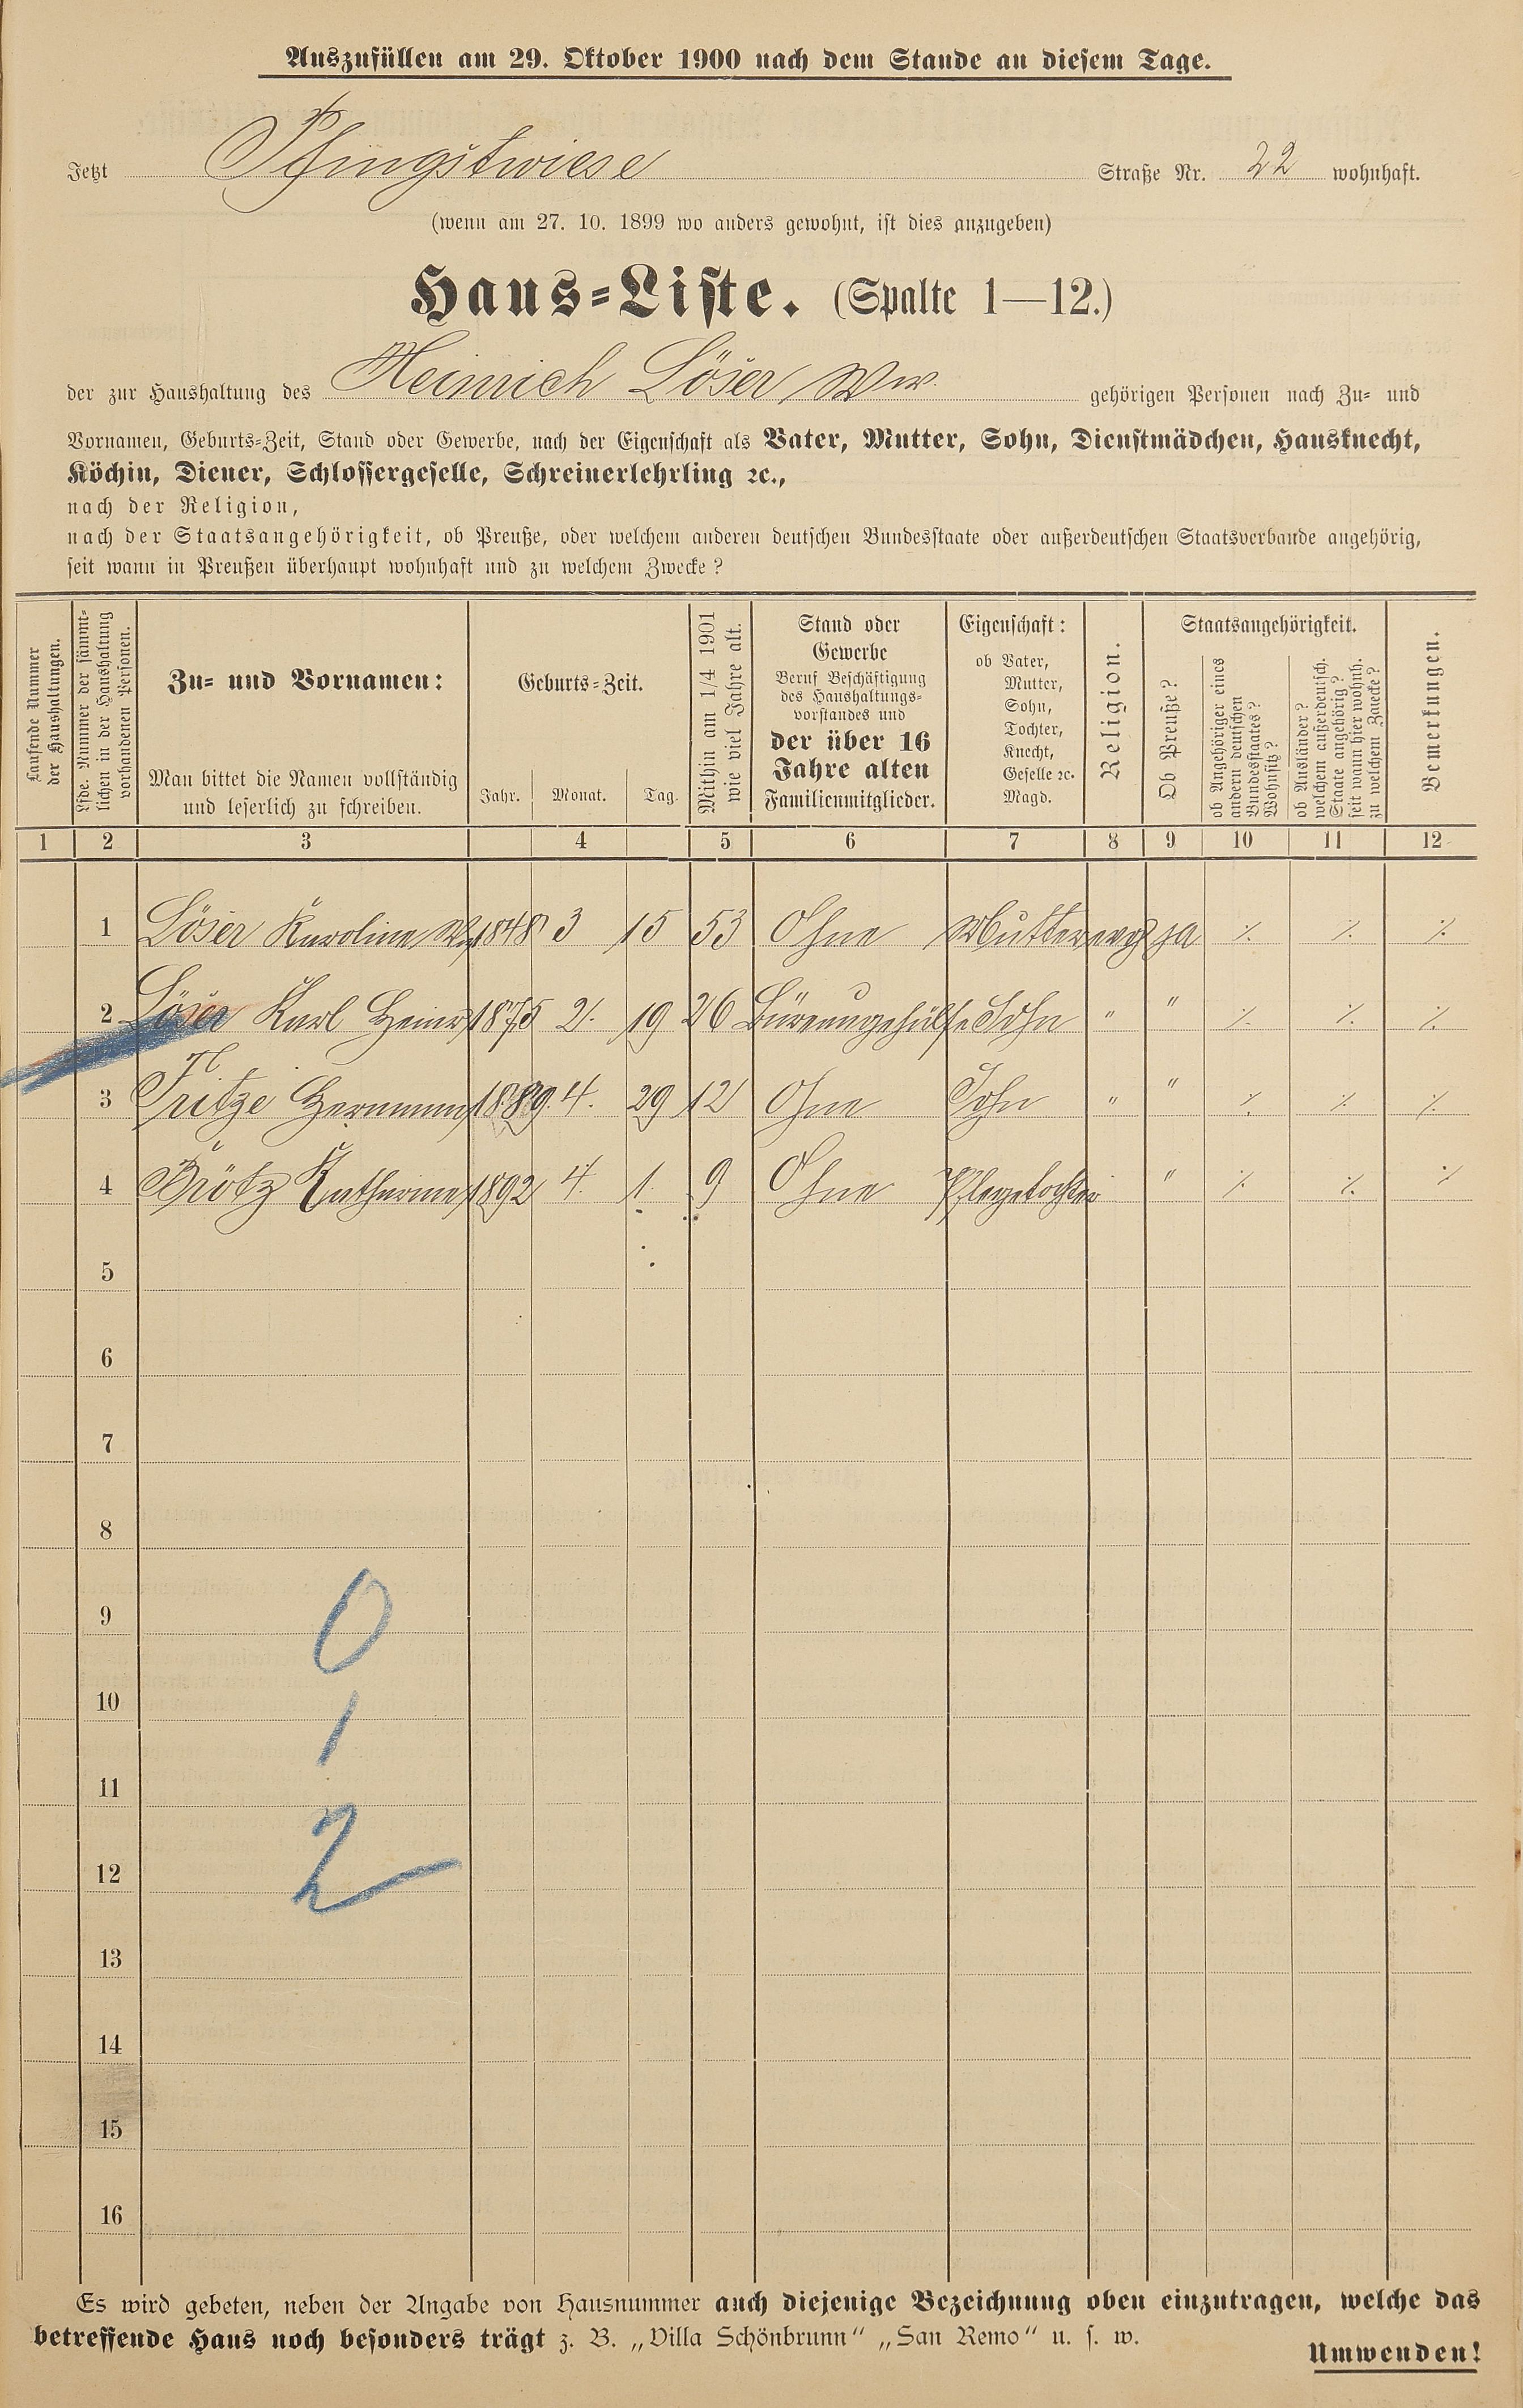 Auszufüllen am 29. Oktober 1900 nach dem Stande an diesem Tage.
Jetzt Pfingstwiese Straße Nr. 22 wohnhaft.
(wenn am 27. 10. 1899 wo anders gewohnt, ist dies anzugeben)
Haus-Liste. (Spalte 1—12.)
der zur Haushaltung des Heinrich Löser Ww. gehörigen Personen nach Zu- und
Vornamen, Geburts-Zeit, Stand oder Gewerbe, nach der Eigenschaft als Vater, Mutter, Sohn, Dienstmädchen, Hausknecht,
Köchin, Diener, Schlossergeselle, Schreinerlehrling ꝛc.,
nach der Religion,
nach der Staatsangehörigkeit, ob Preuße, oder welchem anderen deutschen Bundesstaate oder außerdeutschen Staatsverbande angehörig,
seit wann in Preußen überhaupt wohnhaft und zu welchem Zwecke?
Laufende Nummer
der Haushaltungen.
Lfde. Nummer der sämmt-
lichen in der Haushaltung
vorhandenen Personen.
Zu- und Vornamen:
Man bittet die Namen vollständig
und leserlich zu schreiben.
Geburts-Zeit.
Jahr. Monat. Tag.
Mithin am 1/4 1901
wie viel Jahre alt.
Stand oder
Gewerbe
Beruf Beschäftigung
des Haushaltungs-
vorstandes und
der über 16
Jahre alten
Familienmitglieder.
Eigenschaft:
ob Vater,
Mutter,
Sohn,
Tochter,
Knecht,
Geselle ꝛc.
Magd.
Religion.
Staatsangehörigkeit.
Ob Preuße?
ob Angehöriger eines
andern deutschen
Bundesstaates?
Wohnsitz?
ob Ausländer?
welchem außerdeutsch.
Staate angehörig?
seit wann hier wohnh.
zu welchem Zwecke?
Bemerkungen.
1 2 3 4 5 6 7 8 9 10 11 12
1 Löser Karoline Ww 1848 3 15 53 Ohne Mutter evg ja ⁒ ⁒ ⁒
2 Löser Karl Heinr 1875 2. 19 26 Büreaugehülfe Sohn " " ⁒ ⁒ ⁒
3 Fritze Hermann 1889. 4. 29 12 Ohne Sohn " " ⁒ ⁒ ⁒
4 Brötz Katharine 1892 4. 1. 9 Ohne Pflegetochter " ⁒ ⁒ ⁒
5
6
7
8
9 0
10 1
11
12 2
13
14
15
16
Es wird gebeten, neben der Angabe von Hausnummer auch diejenige Bezeichnung oben einzutragen, welche das
betreffende Haus noch besonders trägt z. B. „Villa Schönbrunn“ „San Remo“ u. s. w.
Umwenden!